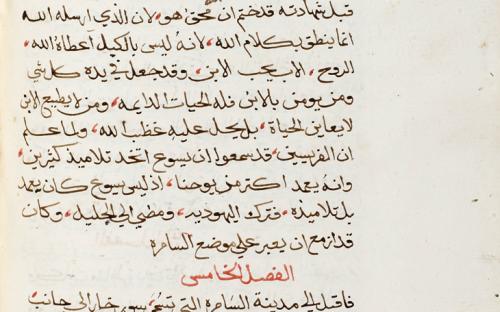 قبل شهادته قد ختم ان الله محق هو، لان الذي ارسله الله
انما ينطق بكلام الله، لانه ليس بالكيل اعطاه الله،
الروح، الاب يحب الابن، وقد جعل في يده كل شي
ومن يومن بالابن فله الحيات الدايمه، ومن لا يطيع الابن
لا يعاين الحياة، بل يحل عليه غضب الله، ولما علم
ان الفريسيين، قد سمعوا ان يسوع اتخد تلاميذ كثيرين،
وانه يعمد اكتر من يوحنا، اذ ليس يسوع كان يعمد
بل تلاميذه، فترك اليهوديه، ومضي الي الجليل، وكان
قد ازمع ان يعبر علي موضع السامره
الفصل الخامس
فاقبل الي مدينة السامره التي تسمي سوخار الي جانب